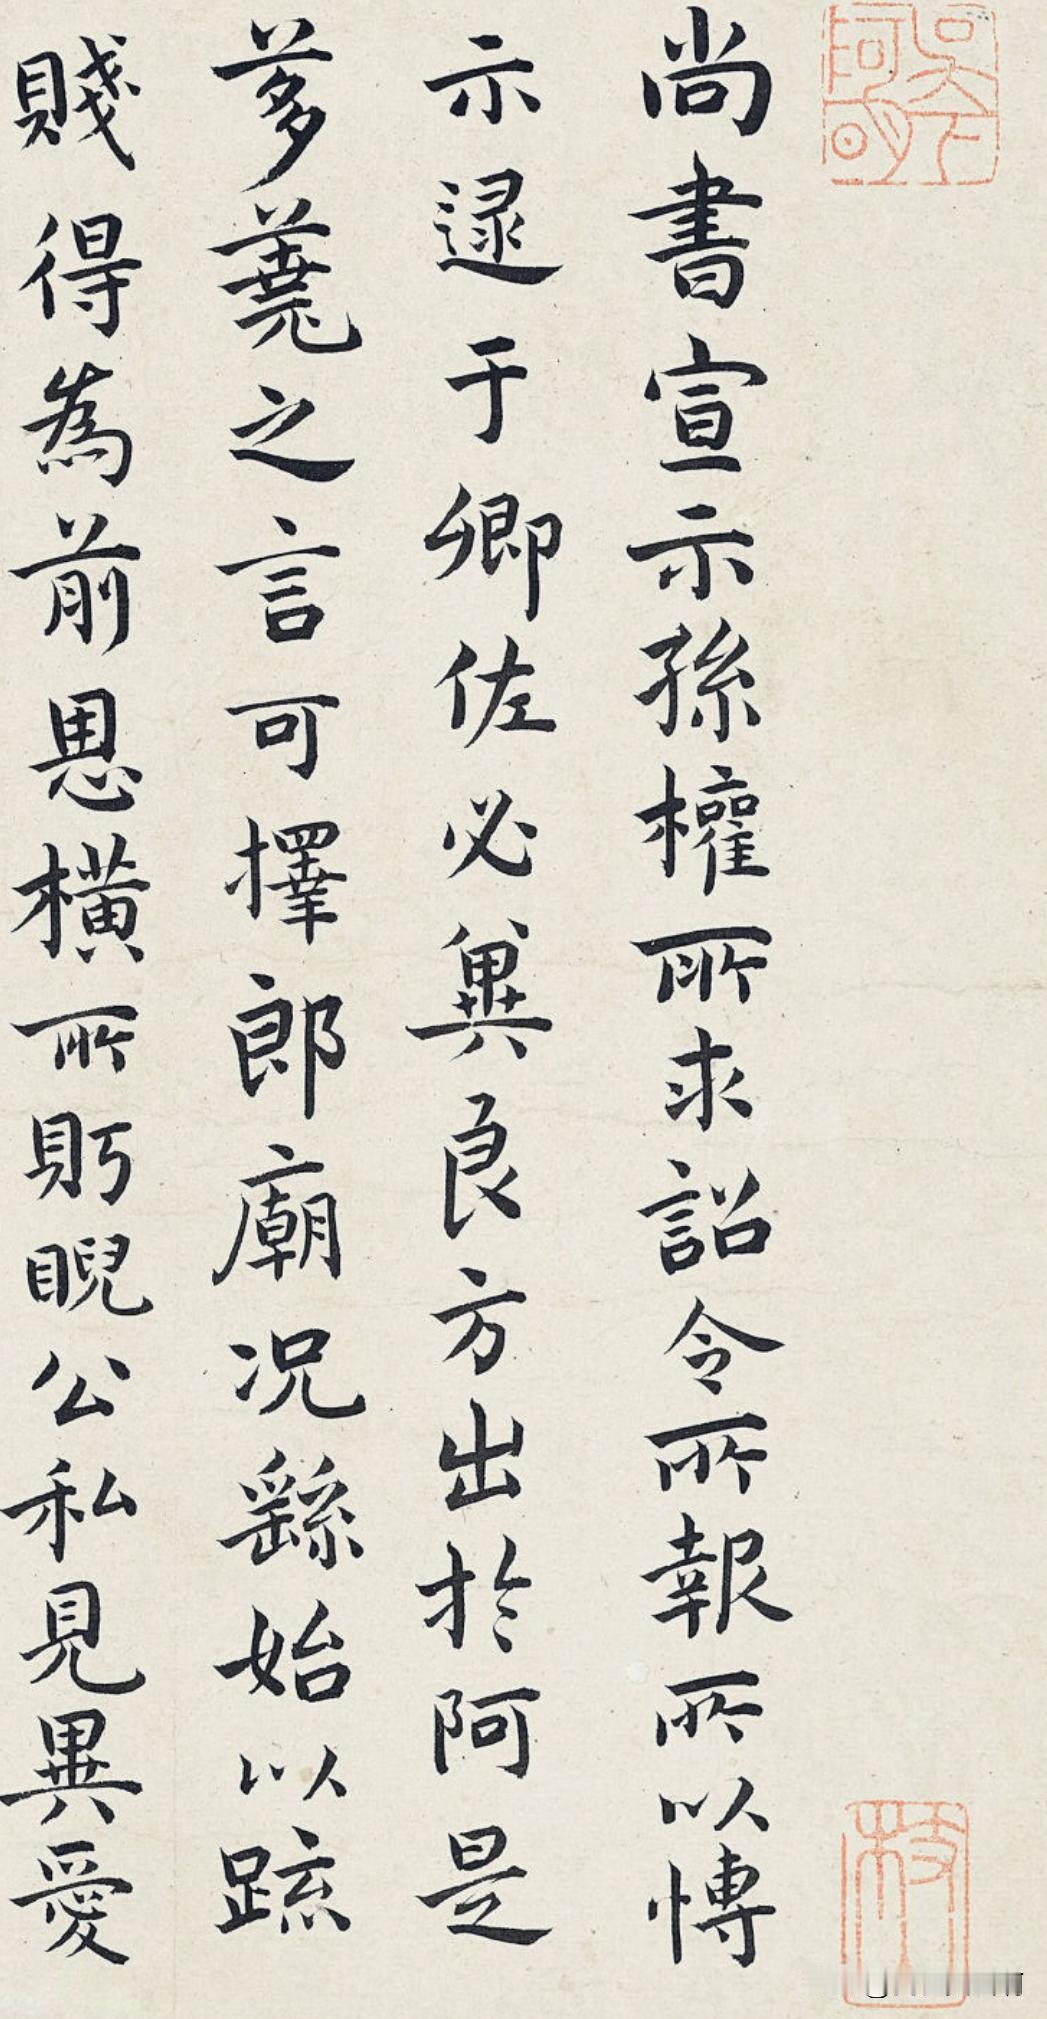 尚書宣示孫權所求詔令所報所以博
示逮于卿佐必冀良方出於阿是
芻蕘之言可擇郎廟況繇始以疏
賤得為前恩橫所眄睨公私見異愛